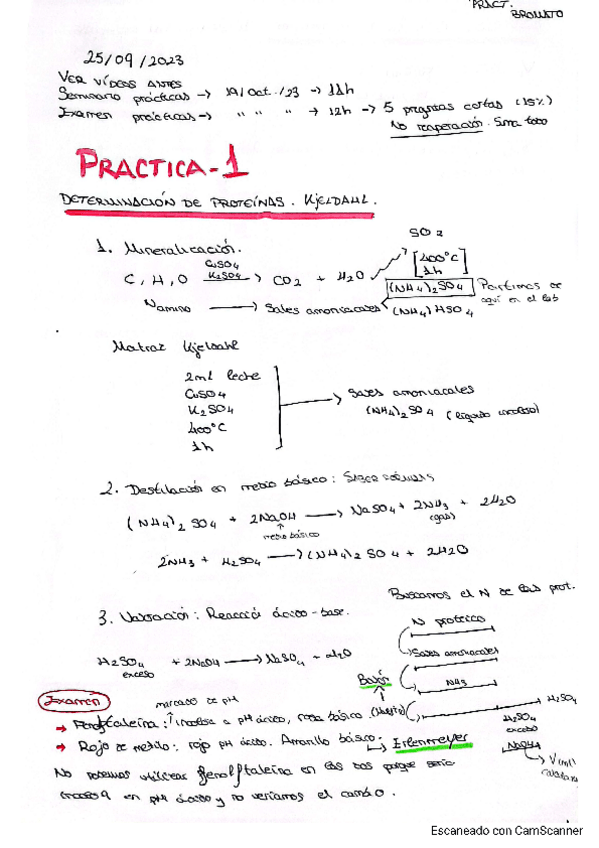 PRACT.
BROMATO
25/09/2023
VER VÍDEOS ANTES
Seminario prácticas -> 19/Oct./23 -> 11h
Examen prácticas -> " " " -> 12h -> 5 preguntas cortas (15%)
No recuperación. Sima todo
PRACTICA-1
DETERMINACIÓN DE PROTEÍNAS. KJELDAHL.
SO2
1. Mineralización.
[400°C 1h]
C, H, O CuSO4 K2SO4 -> CO2 + H2O
(NH4)2SO4 Partimos de aquí en el lab
N amino -> Sales amoniacales (NH4)HSO4
Matraz Kjeldahl
2ml leche
CuSO4
K2SO4
400°C
1h
-> Sales amoniacales
(NH4)2SO4 (líquido incoloro)
2. Destilación en medio básico: SABER FÓRMULAS
(NH4)2SO4 + 2NaOH -> NaSO4 + 2NH3 + 2H2O
(gas)
medio básico
2NH3 + H2SO4 -> (NH4)2SO4 + 2H2O
Buscamos el N de las prot.
3. Valoración: Reacción ácido-base.
N proteico
Sales amoniacales
H2SO4 + 2NaOH -> NaSO4 + 2H2O
exceso
NH3
H2SO4
H2SO4 exceso
NaOH
Examen
marcador de pH
Fenolftaleína: incolora a pH ácido, rosa básico
Rojo de metilo: rojo pH ácido. Amarillo básico. -> Erlenmeyer
No podemos utilizar fenolftaleína en las dos porque sería
incolora en pH ácido y no veríamos el cambio.
Escaneado con CamScanner